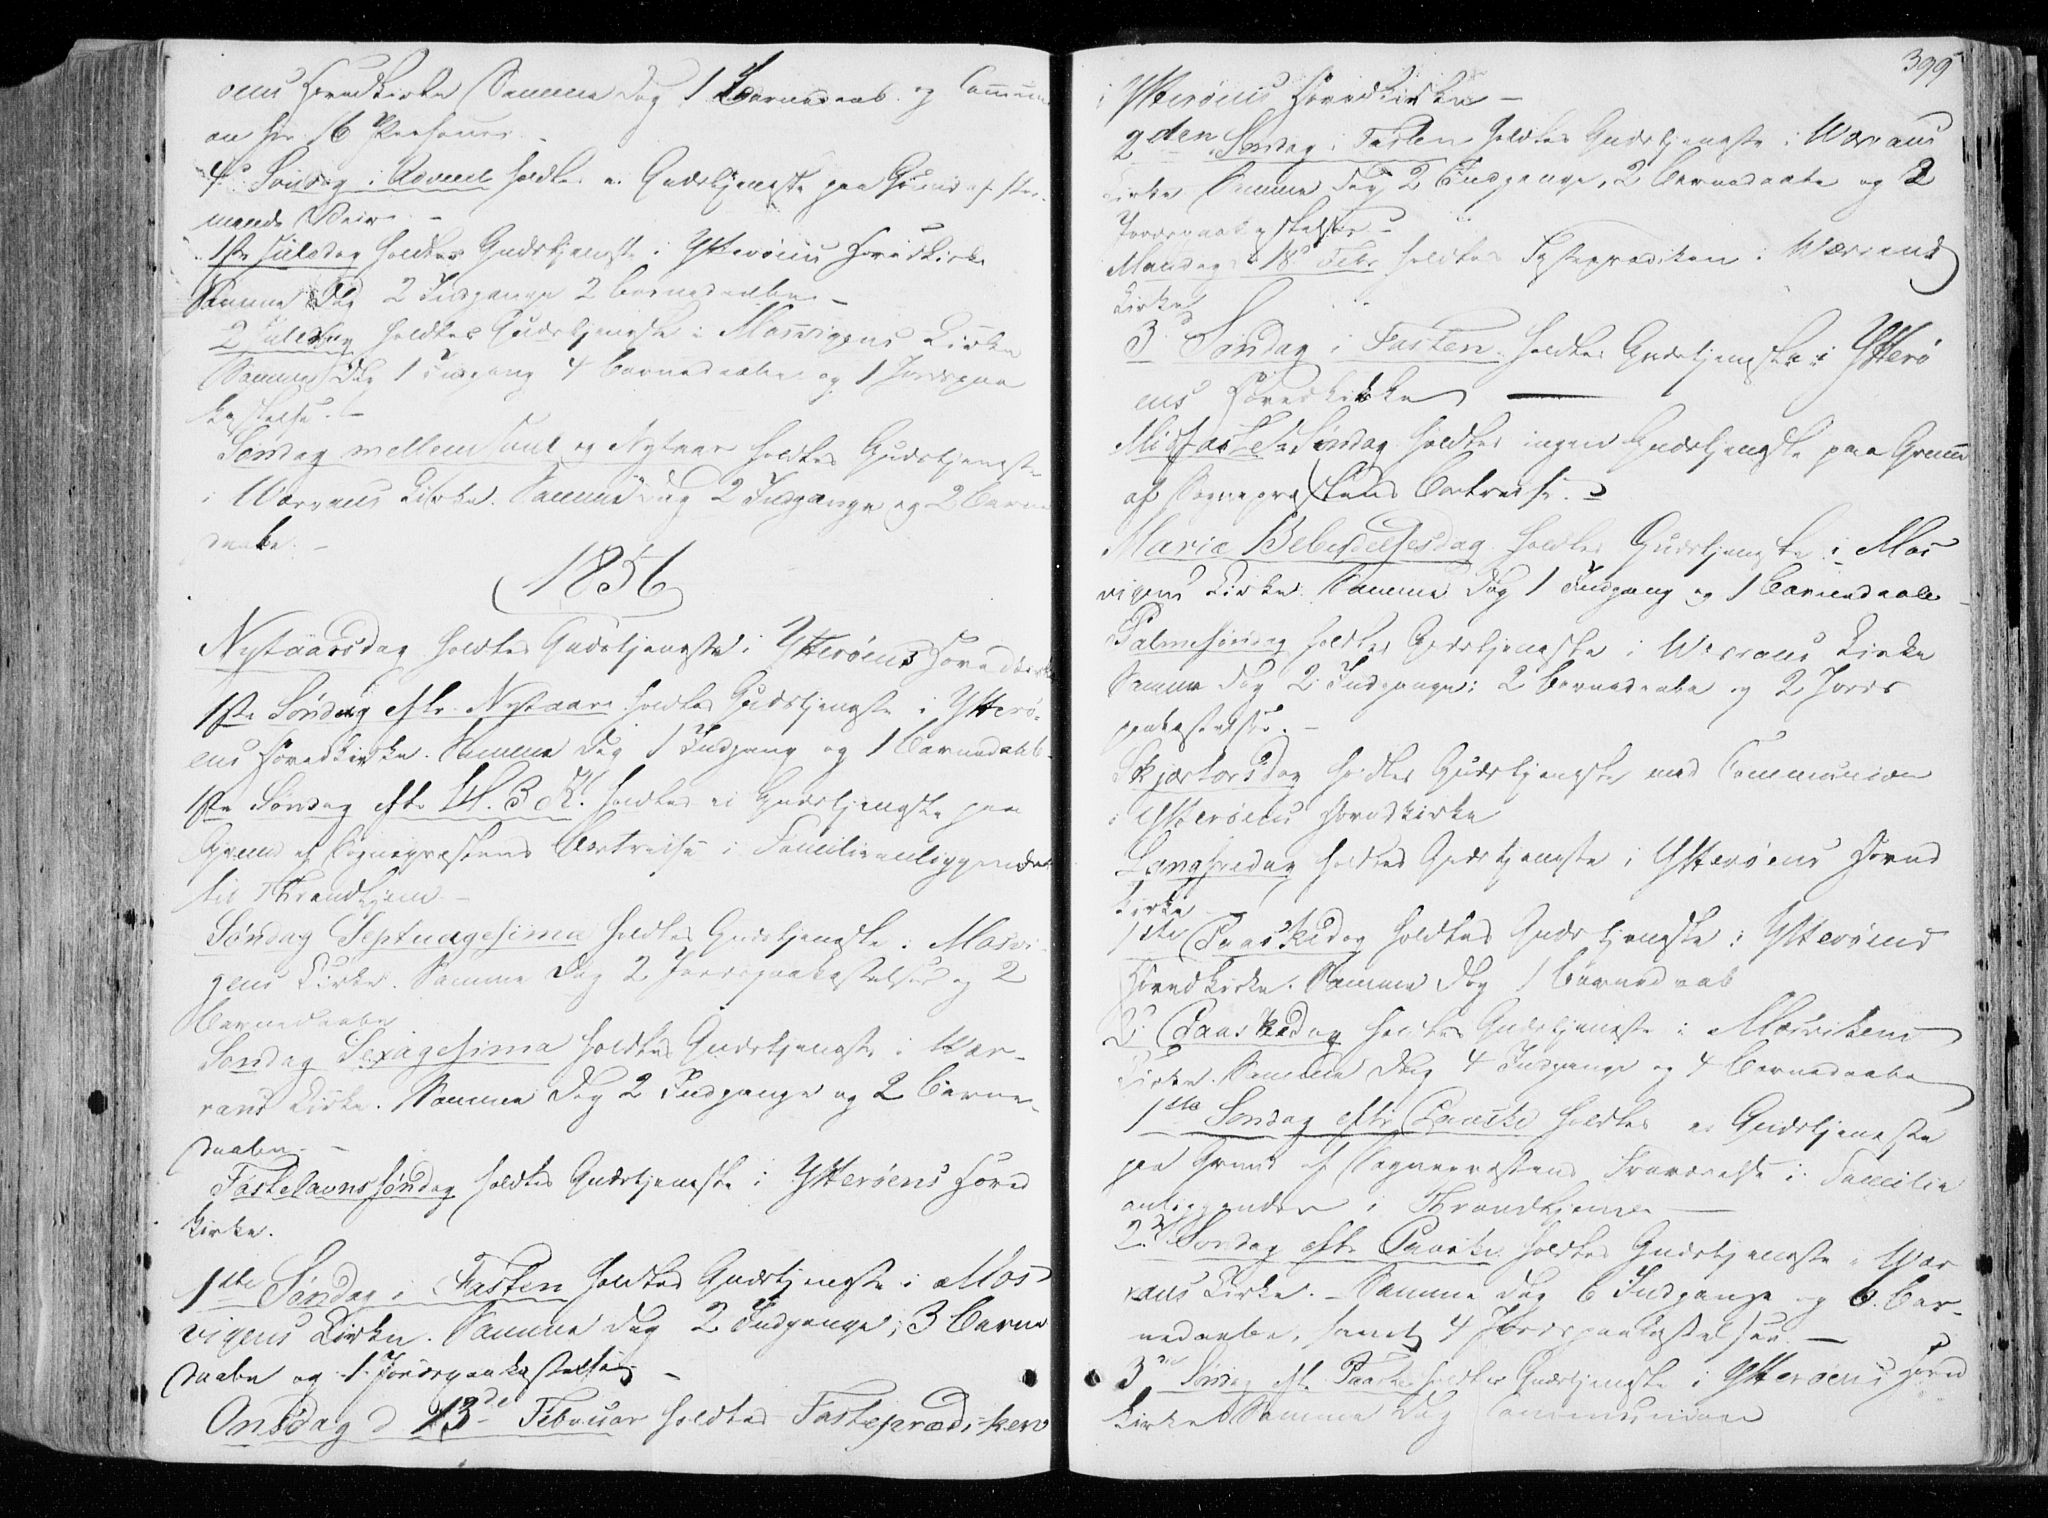 ens Hovedkirke Samme Dag 1 Barnedaab og Communi
on for 16 Personer. –
4de Søndag i Advent holdtes ei Gudstjeneste paa Grund af stor-
mende Veir. –
1ste Juledag holdtes Gudstjeneste i Ytterøens Hovedkirke
Samme Dag 2 Indgange 2 Barnedaabe –
2 Juledag holdtes Gudstjeneste i Mosvigens Kirke
Samme Dag 1 Indgang 4 Barnedaabe og 1 Jordspaa
kastelse. –
Søndag mellem Juul og Nytaar holdtes Gudstjeneste
i Wærrans Kirke. Samme Dag 2 Indgange og 2 Barne
daabe. –
1856
Nytaarsdag holdtes Gudstjeneste i Ytterøens Hovedkirke
1ste Søndag eftr. Nytaar holdtes Gudstjeneste i Ytterø-
ens Hovedkirke. Samme Dag 1 Indgang og 1 Barnedaab.
1ste Søndag eftr H. 3 K. holdtes ei Gudstjeneste paa
Grund af Sognepræstens Bortreise i Familieanliggender
til Throndhjem. –
Søndag Septuagesima holdtes Gudstjeneste i Mosvi-
gens Kirke. Samme Dag 2 Jordspaakastelser og 2
Barnedaabe
Søndag Sexagesima holdtes Gudstjeneste i Wær-
rans Kirke. Samme Dag 2 Indgange og 2 Barne-
daabe. –
Fastelavnssøndag holdtes Gudstjeneste i Ytterøens Hoved
kirke.
1ste Søndag i Fasten holdtes Gudstjeneste i Mos-
vigens Kirke. Samme Dag 2 Indgange, 3 Barne
daabe og 1 Jordspaakastelse –
Onsdag d 13de Februar holdtes Fasteprædiken
399
i Ytterøens Hovedkirke –
2den Søndag i Fasten holdtes Gudstjeneste i Wærrans
Kirke Samme Dag 2 Indgange, 2 Barnedaabe og 2
Jordspaakastelser –
Mandag d 18de Febr holdtes Fasteprædiken i Wærrans
Kirke
3d Søndag i Fasten holdtes Gudstjeneste i Ytterø
ens Hovedkirke —
Midfaste Søndag holdtes ingen Gudstjeneste paa Grund
af Sognepræstens Bortreise. –
Maria Bebudelsesdag holdtes Gudstjeneste i Mos
vigens Kirke. Samme Dag 1 Indgang og 1 Barnedaab –
Palmesøndag holdtes Gudstjeneste i Wærrans Kirke
Samme Dag 2 Indgange, 2 Barnedaabe og 2 Jords
paakastelser. –
Skjærtorsdag holdtes Gudstjeneste med Communion
i Ytterøens Hovedkirke
Langfredag holdtes Gudstjeneste i Ytterøens Hoved
kirke
1ste Paaskedag holdtes Gudstjeneste i Ytterøens
Hovedkirke. Samme Dag 1 Barnedaab
2d Paaskedag holdtes Gudstjeneste i Mosvikens
Kirke. Samme Dag 4 Indgange og 4 Barnedaabe
1ste Søndag eftr Paaske holdtes ei Gudstjeneste
paa Grund af Sognepræstens Fraværelse i Familie
anliggender i Throndhjem —
2d Søndag eftr Paaske holdtes Gudstjeneste i Wær
rans Kirke. – Samme Dag 6 Indgange og 6. Bar-
nedaabe, samt 4 Jordspaakastelser. —
3die Søndag eftr Paaske holdtes Gudstjeneste i Ytterøens Hoved
kirke Samme Dag Communion